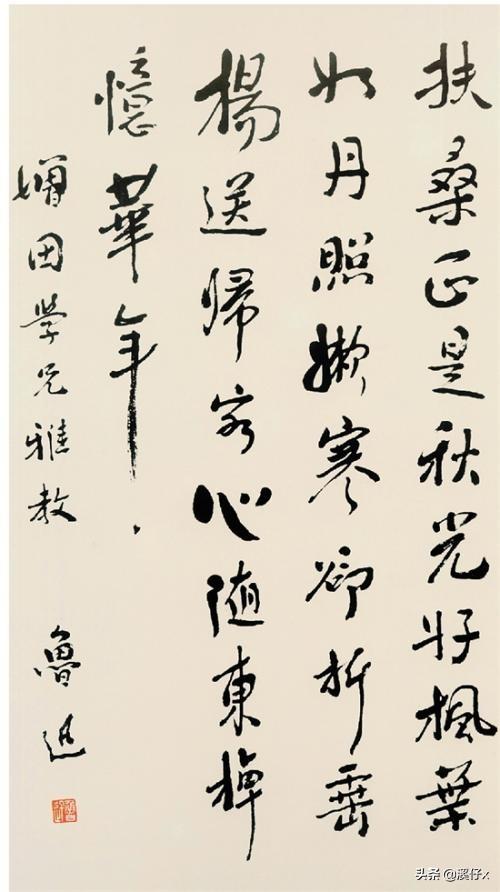 扶桑正是秋光好楓葉
如丹照嫩寒卻折垂
楊送歸客心随東棹
憶華年
增田学兄雅教 魯迅
头条 @溪仔x